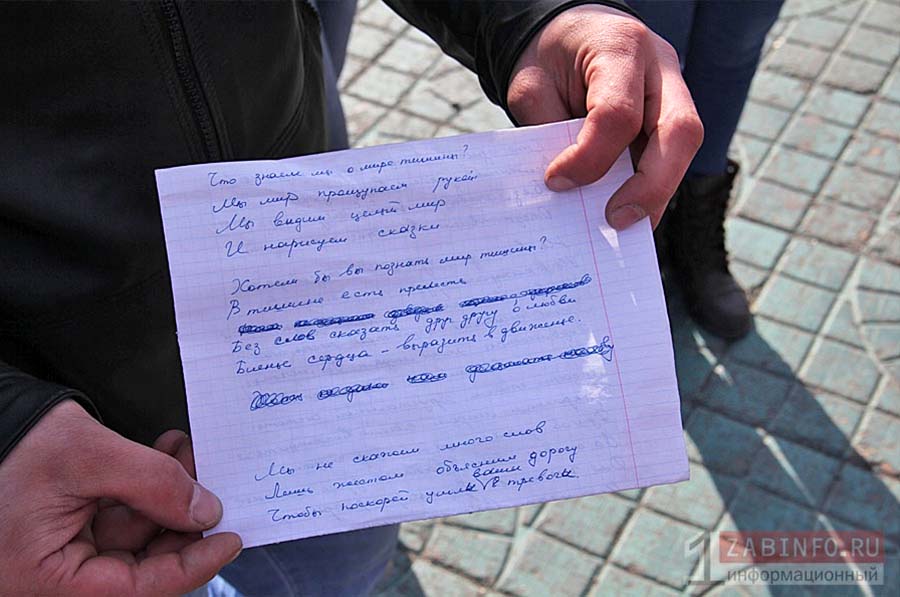 Что знаем мы о мире тишины?
Мы мир прощупаем рукой
Мы видим целый мир
И нарисуем сказки
Хотели бы вы познать мир тишины?
В тишине есть прелесть
Без слов сказать друг другу о любви
Биенье сердца - выразить в движенье.
Мы не скажем много слов
Лишь жестом объясним дорогу
Чтобы поскорей ушли ваши тревоги.
1 ZABINFO.RU
информационный